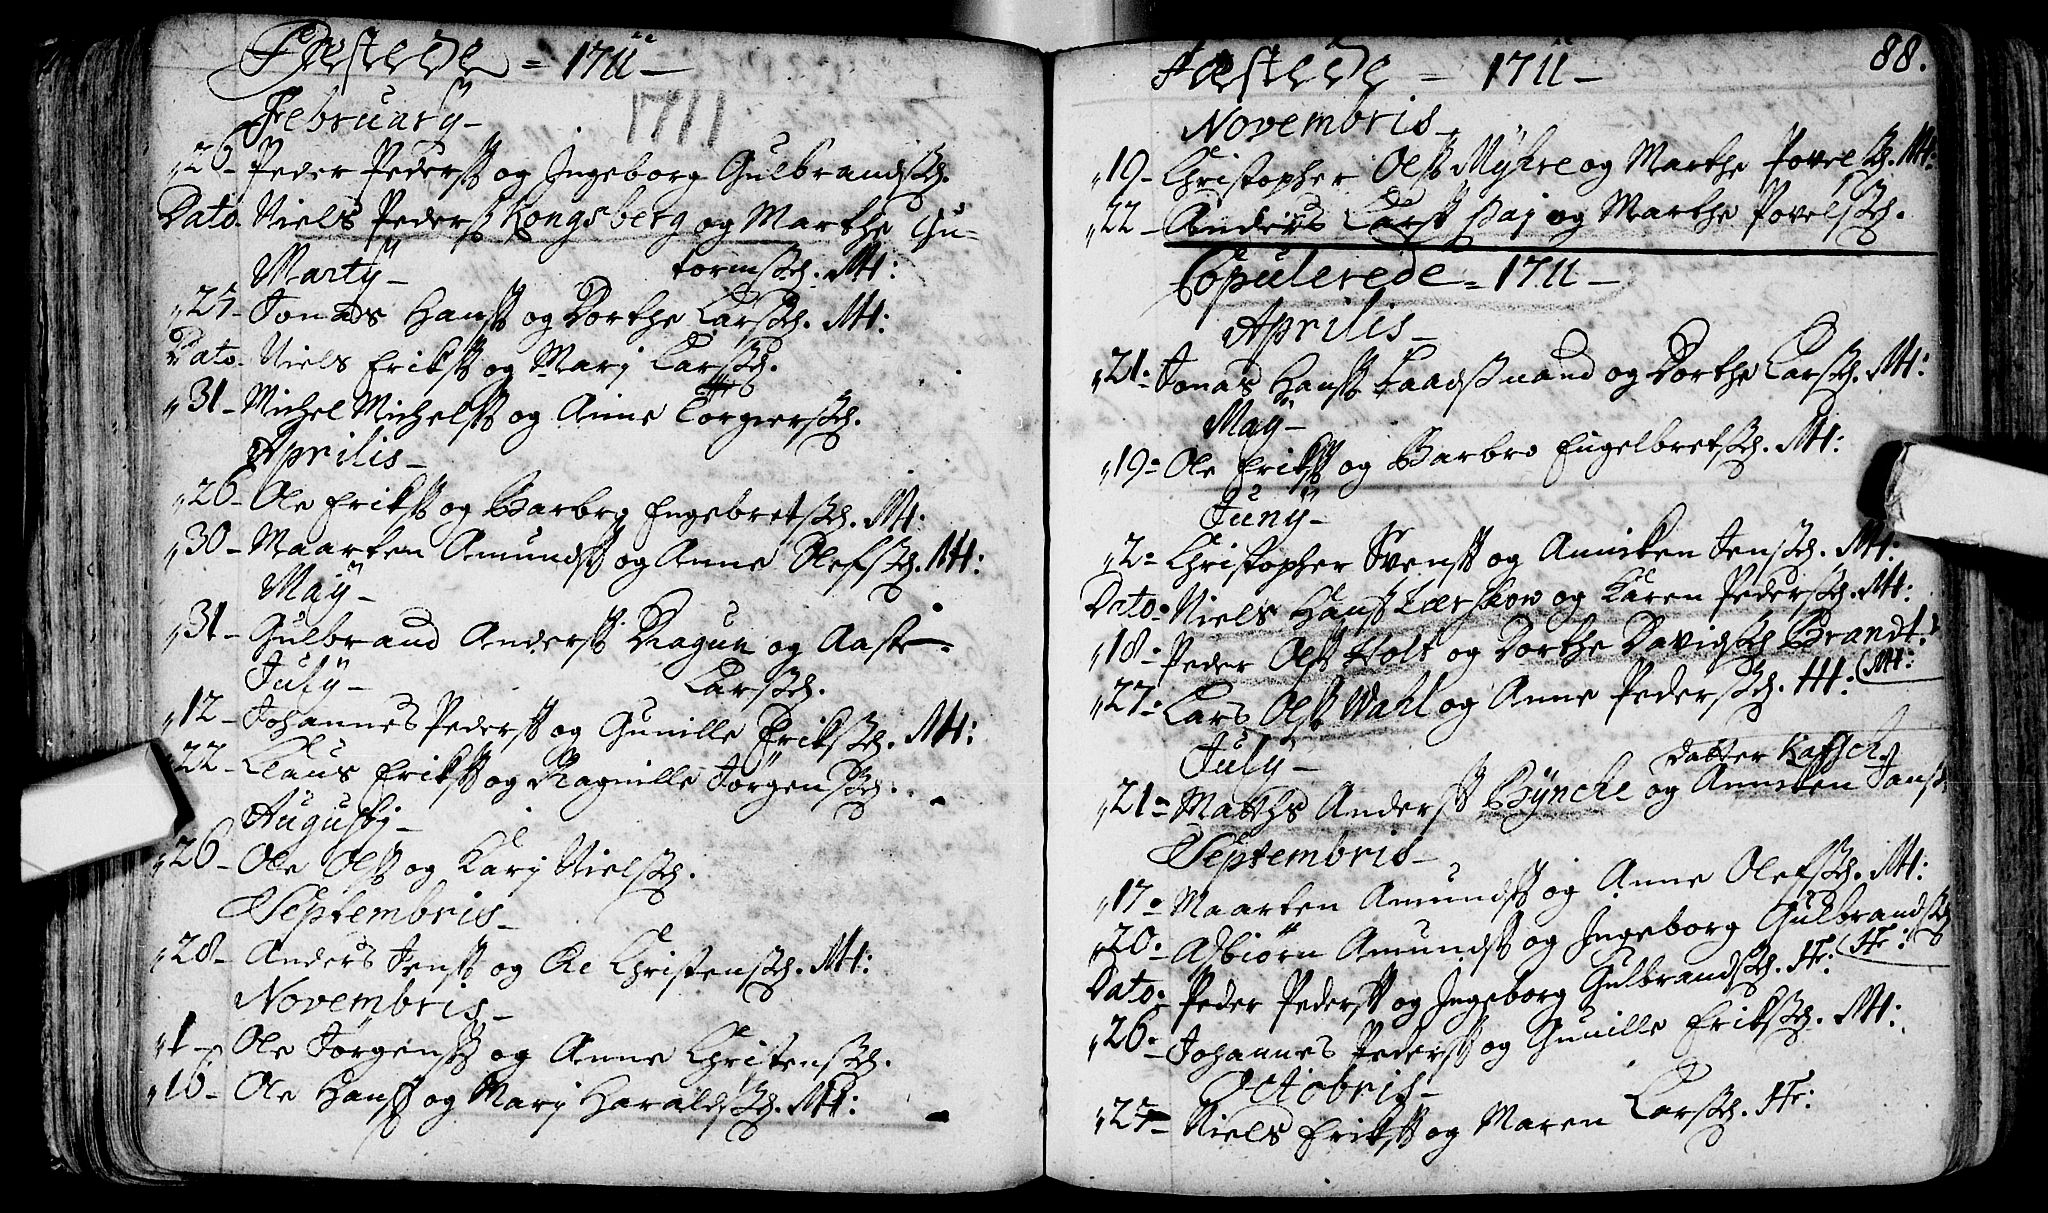 Fæstede = 1711 -
1711
February -
26 - Peder Pederss: og Ingeborg Gulbrandsd.
Dato. Niels Pederss: Kongsberg og Marthe Gu-
tormsd. M:
Marty -
25 - Jonas Hanss: og Dorthe Larsd. M:
Dato. Niels Erikss: og Mary Larsd.
31 - Michel Michelss: og Anne Torgiersd.
Aprilis -
26 - Ole Erikss: og Barbro Engebretsd. M:
30 - Maarten Amundss: og Anne Olefsd. M:
May -
31 - Gulbrand Anderss: Ragun og Aaste
Larsd.
July -
12 - Johannes Pederss: og Gunille Eriksd. M:
22 - Claus Erikss: og Ragnille Jørgensd.
Augusty -
26 - Ole Olss: og Kary Nielsd.
Septembris -
28 - Anders Jenss: og Christensd. M:
Novembris -
1 - Ole Jørgenss: og Anne Christensd.
16 - Ole Hanss: og Mary Haraldsd. M:
Fæstede = 1711 - 88.
Novembris -
19 - Christopher Olss: Myhre og Marthe Povelsd. M:
22 - Anders Larss: og Marthe Povelsd.
Copulerede = 1711 -
Aprilis -
21 - Jonas Hanss: og Dorthe Larsd. M:
May -
19 - Ole Erikss: og Barbro Engelbretsd. M:
Juny -
2 - Christopher Svenss: og Anniken Jensd. M:
Dato. Niels Hanss: og Karen Pedersd. M:
18 - Peder Olss: Holt og Dorthe Davidsd. Brandt.
M:
27 - Lars Olss: Wahl og Anne Pedersd. M:
July -
datter
21 - Matths Anderss: Bynche og Anniken Jans
Septembris -
17 - Maarten Amundss: og Anne Olefsd. M:
20 - Asbiørn Amundss: og Ingeborg Gulbrandsd.
Fr:
Dato - Peder Pederss: og Ingeborg Gulbrandsd. Fr:
26 - Johannes Pederss: og Gunille Eriksd. M:
Octobris -
25 - Niels Erikss: og Maren Larsd. Fr: